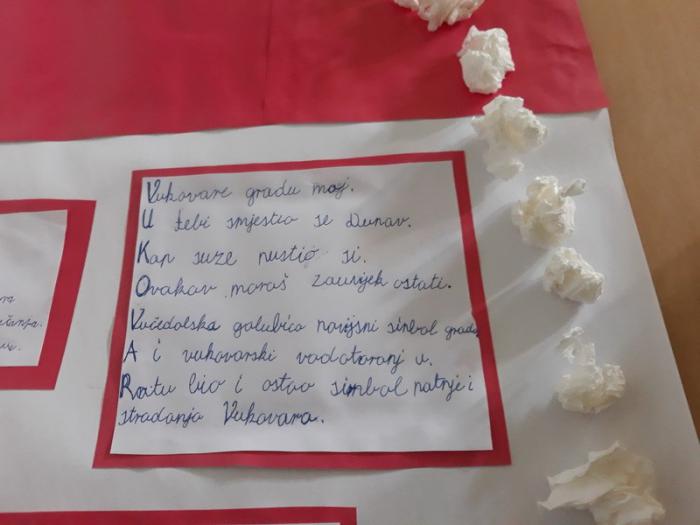 Vukovare gradu moj.
U tebi smjestio se Dunav.
Kap suze pustio si.
Ovakav moraš zauvijek ostati.
Vučedolska golubica povijesni simbol grada
A i vukovarski vodotoranj u.
Ratu bio i ostao simbol patnje i
stradanja Vukovara.